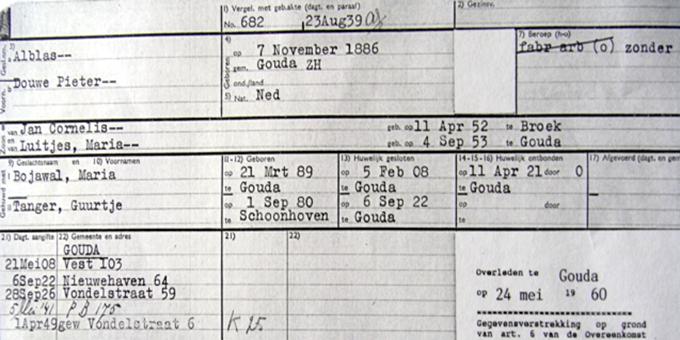 1) Vergel. met geb.akte (dagt. en paraaf)
2) Gezinsv.
No. 682 23Aug39
3) Alblas--
Douwe Pieter--
4) op 7 November 1886
Geboren gem. Gouda ZH
ond./land
5) Nat. Ned
7) Beroep (h-o)
fabr arb (o) zonder
Zoon van Jan Cornelis-- geb. op 11 Apr 52 te Broek
en van Luitjes, Maria-- geb. op 4 Sep 53 te Gouda
9) Geslachtsnaam en 10) Voornamen 11-12) Geboren 13) Huwelijk gesloten 14-15-16) Huwelijk ontbonden 17) Afgevoerd (dagt. en gem
Gehuwd met
Bojawal, Maria op 21 Mrt 89 op 5 Feb 08 op 11 Apr 21 door O
te Gouda te Gouda te Gouda
Tanger, Guurtje op 1 Sep 80 op 6 Sep 22 op door
te Schoonhoven te Gouda te
21) Dagt. aangifte 22) Gemeente en adres 21) 22)
GOUDA
21Mei08 Vest I03
6Sep22 Nieuwehaven 64
28Sep26 Vondelstraat 59
5 Mei '41 P B 175
1Apr49 gew Vondelstraat 6 K 25
Overleden te Gouda
op 24 mei 19 60
Gegevensverstrekking op grond
van art. 6 van de Overeenkomst